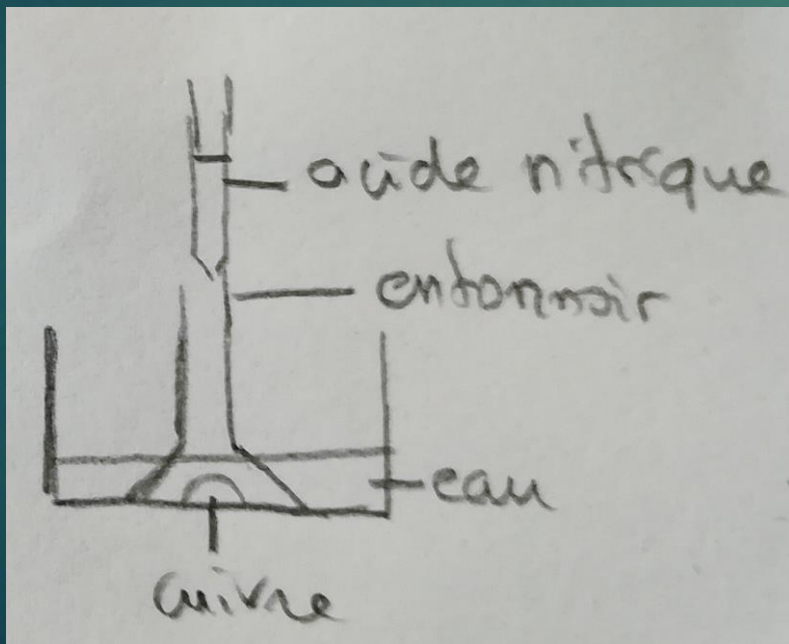 acide nitrique
entonnoir
eau
cuivre